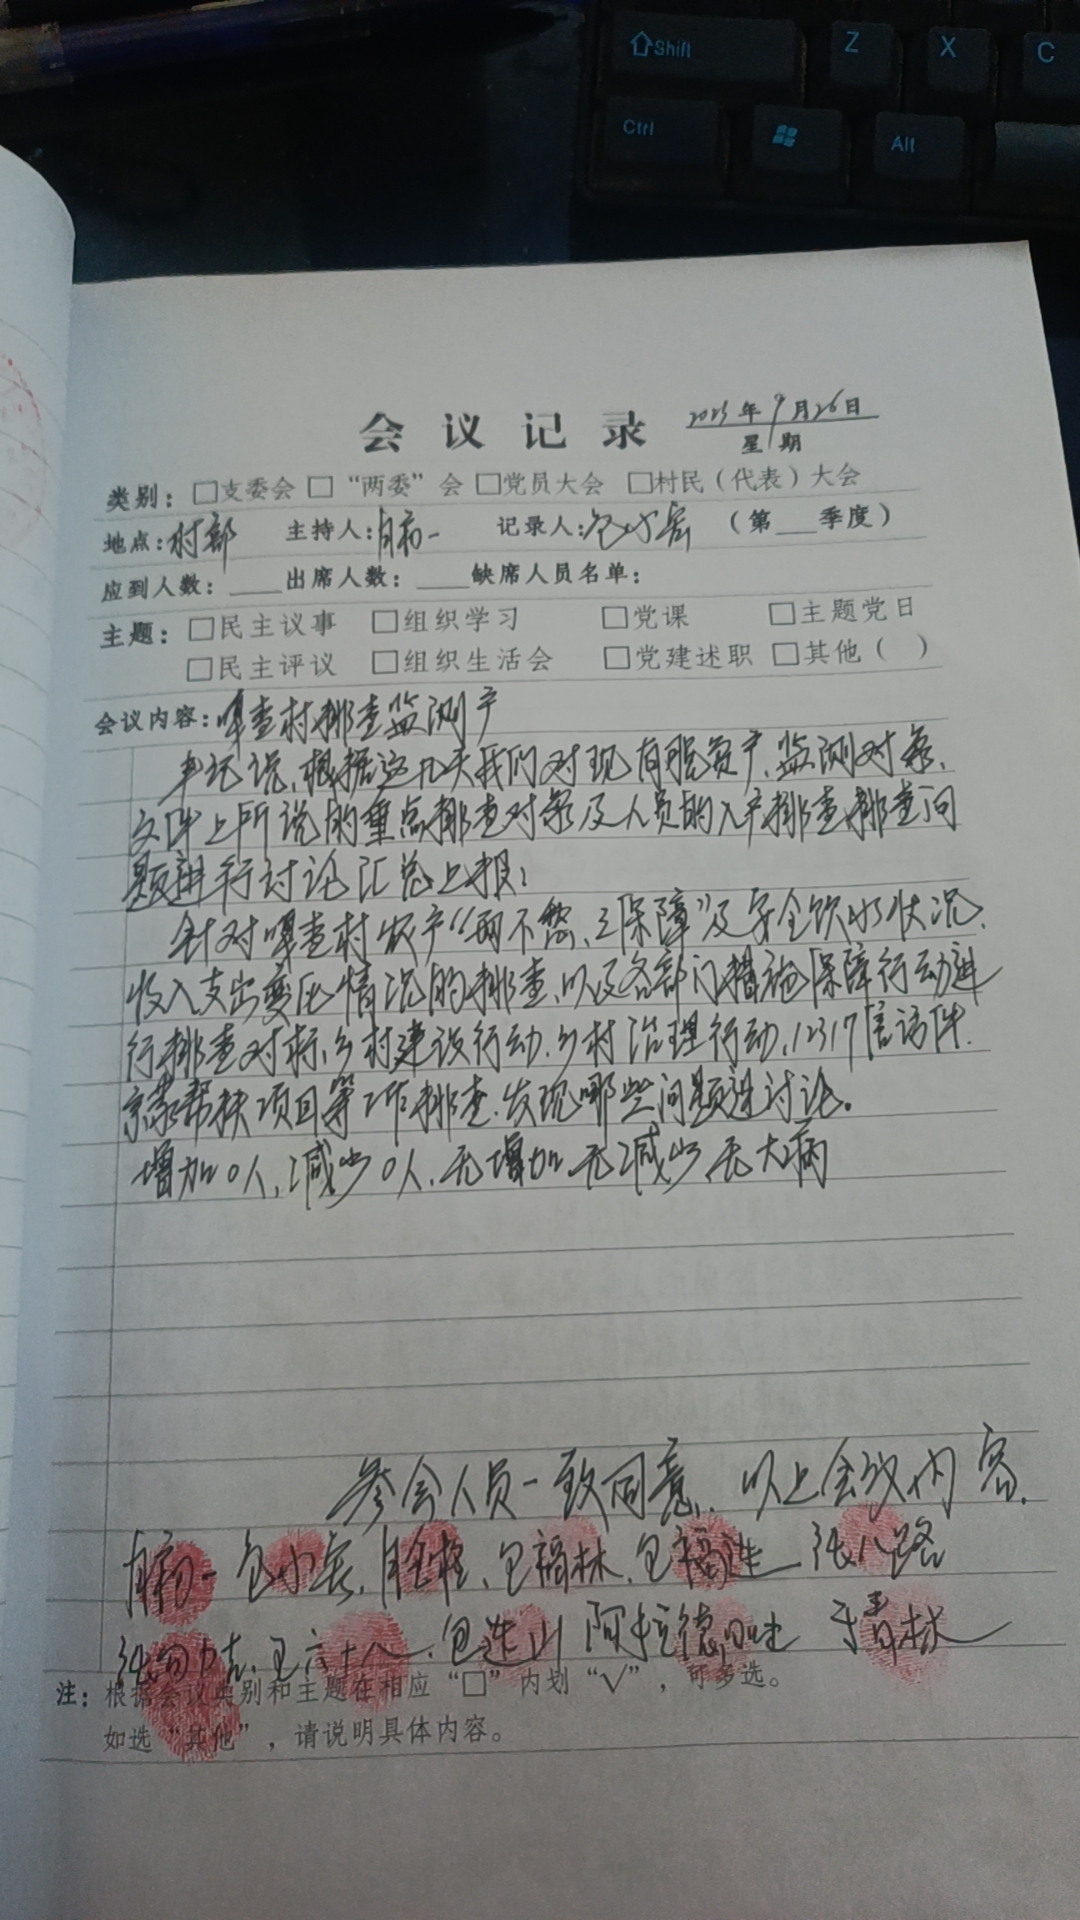 Shift
Z
X
C
Ctrl
Alt
会议记录
年9月26日
星期
类别：□支委会 □“两委”会 □党员大会 □村民（代表）大会
地点：村部 主持人： 记录人：包 （第___季度）
应到人数：____出席人数：____缺席人员名单：
主题：□民主议事 □组织学习 □党课 □主题党日
□民主评议 □组织生活会 □党建述职 □其他（ ）
会议内容：嘎查村排查监测户
书记说，根据这几天我们对现有脱贫户、监测对象、
文件上所说的重点排查对象及人员的入户排查，排查问
题进行讨论汇总上报：
针对嘎查村农户“两不愁、三保障”及安全饮水状况、
收入支出变化情况的排查，以及各部门措施保障行动进
行排查对标，乡村建设行动、乡村治理行动，12317信访件、
京蒙帮扶项目等工作排查，发现哪些问题进讨论。
增加0人，减少0人，无增加无减少无大病
参会人员一致同意，以上会议内容．
包 包福林、包福连 张八路
六十八、包连山 阿拉德 青林
注：根据会议类别和主题在相应“□”内划“√”，可多选。
如选“其他”，请说明具体内容。